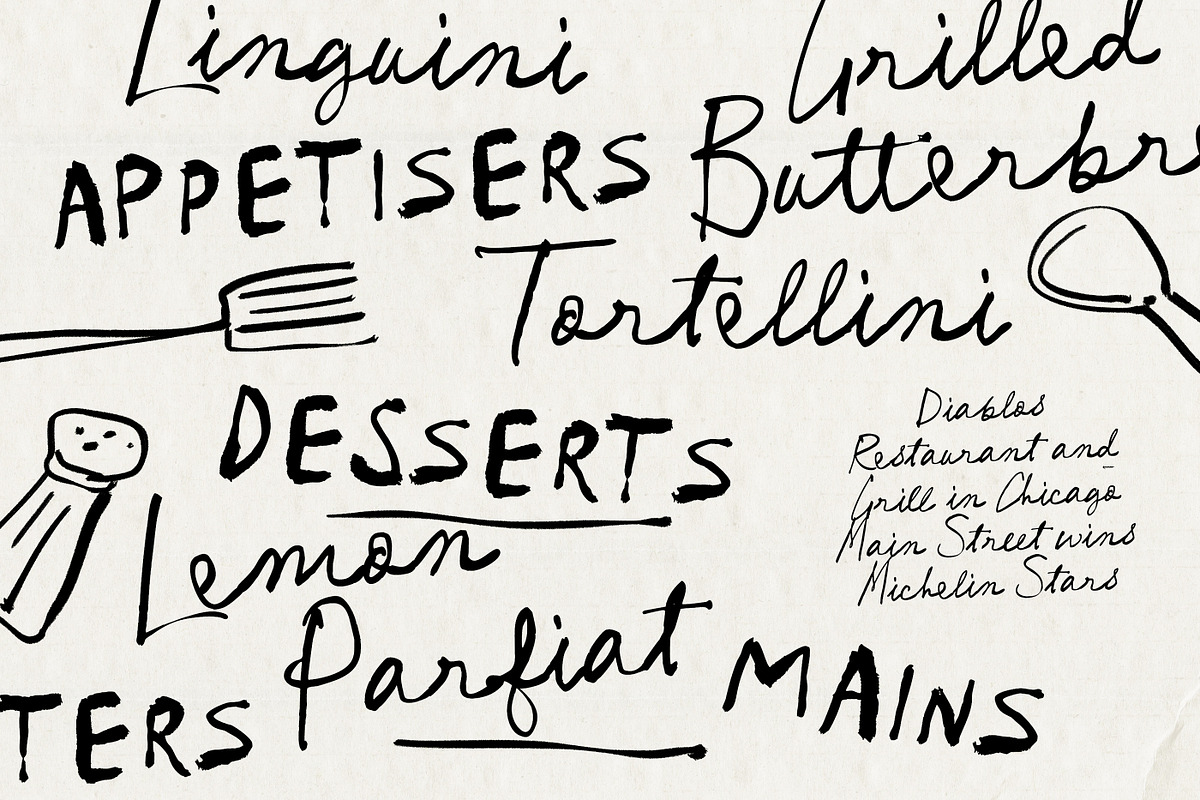 Linguini
Grilled
Butterbre
APPETISERS
Tortellini
DESSERTS
Lemon
Parfiat
Diablos
Restaurant and
Grill in Chicago
Main Street wins
Michelin Stars
TERS
MAINS